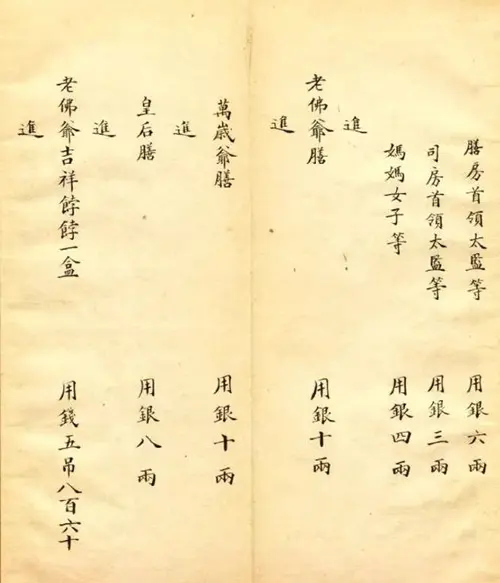 膳房首領太監等 用銀六兩
司房首領太監等 用銀三兩
媽媽女子等 用銀四兩
進
老佛爺膳 用銀十兩
進
萬歲爺膳 用銀十兩
進
皇后膳 用銀八兩
進
老佛爺吉祥餑餑一盒 用錢五吊八百六十
進